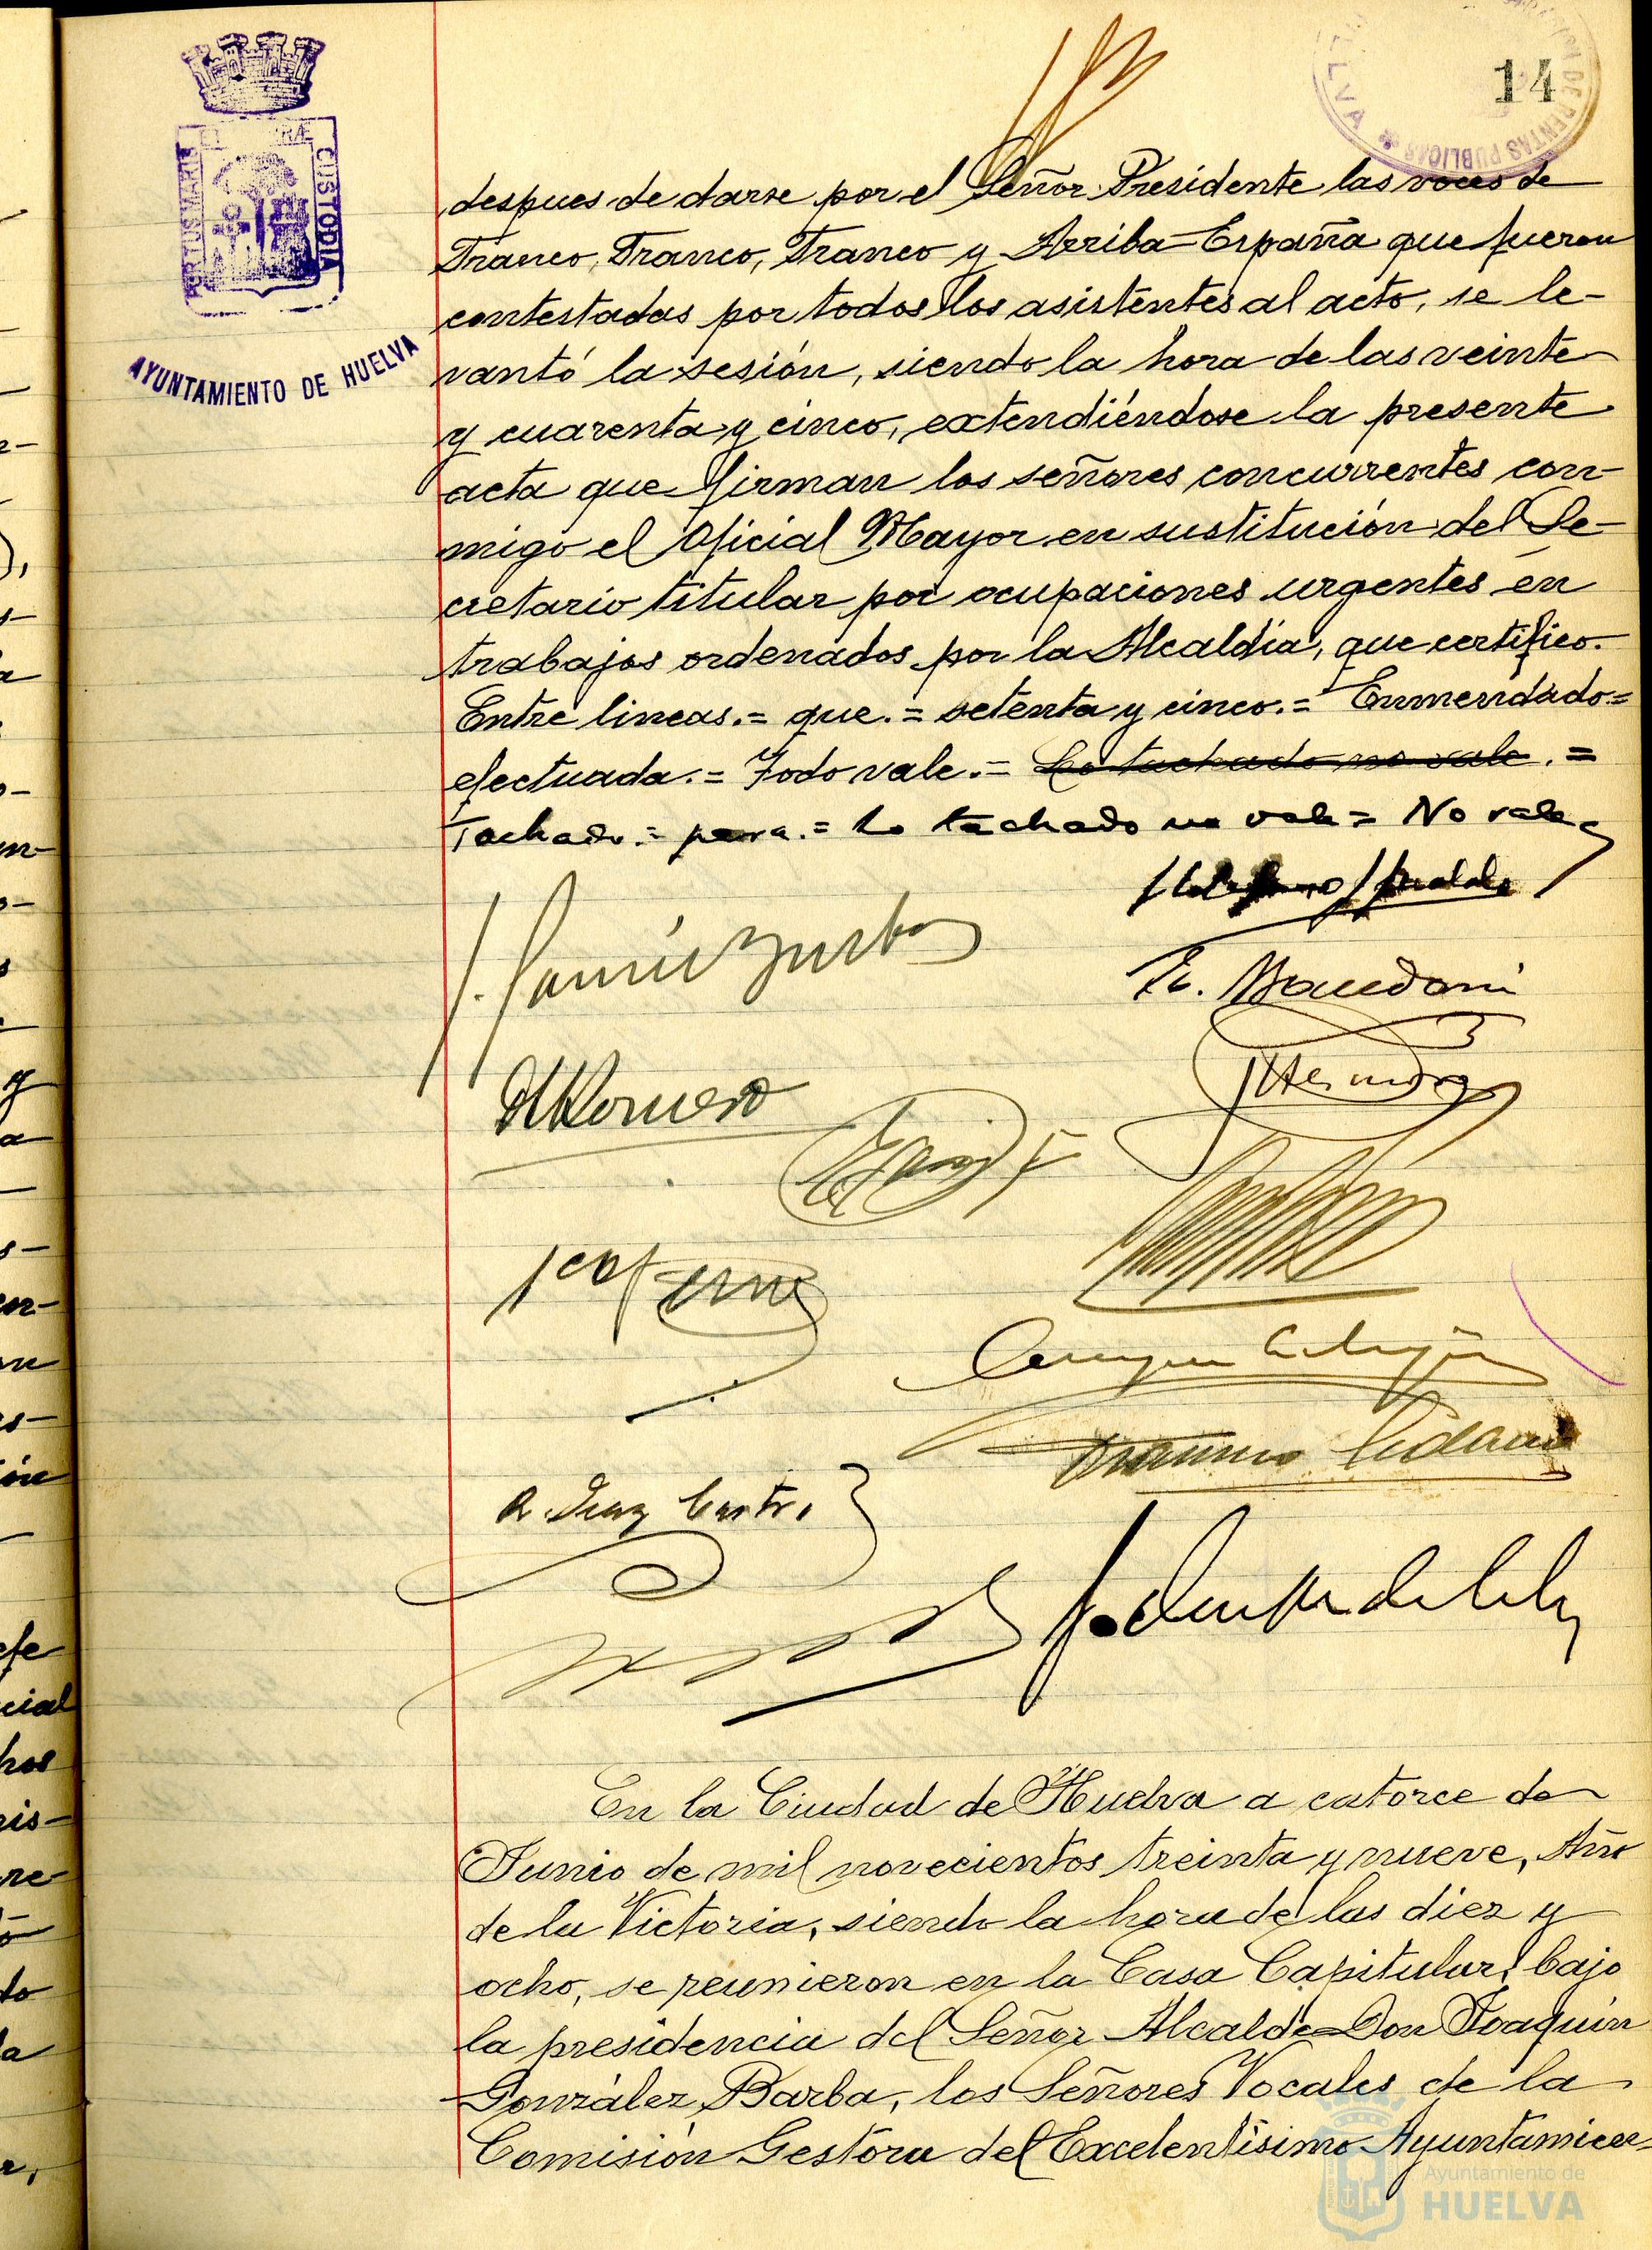 14
PORTUS MARIS
CUSTODIA
AYUNTAMIENTO DE HUELVA
RENTAS PUBLICAS
despues de darse por el Señor Presidente las voces de
Franco, Franco, Franco y Arriba España que fueron
contestadas por todos los asistentes al acto, se le-
vantó la sesión, siendo la hora de las veinte
y cuarenta y cinco, extendiéndose la presente
acta que firman los señores concurrentes con-
migo el Oficial Mayor en sustitución del Se-
cretario titular por ocupaciones urgentes en
trabajos ordenados por la Alcaldía, que certifico.
Entre lineas.= que.= setenta y cinco.= Enmendado=
efectuada.= Todo vale.= Lo tachado no vale.=
Tachado.= para.= Lo tachado no vale= No vale
A. Romero
R. Diaz
En la Ciudad de Huelva a catorce de
Junio de mil novecientos treinta y nueve, Año
de la Victoria, siendo la hora de las diez y
ocho, se reunieron en la Casa Capitular, bajo
la presidencia del Señor Alcalde Don Joaquín
González Barba, los Señores Vocales de la
Comisión Gestora del Excelentísimo Ayuntamien-
Ayuntamiento de
HUELVA